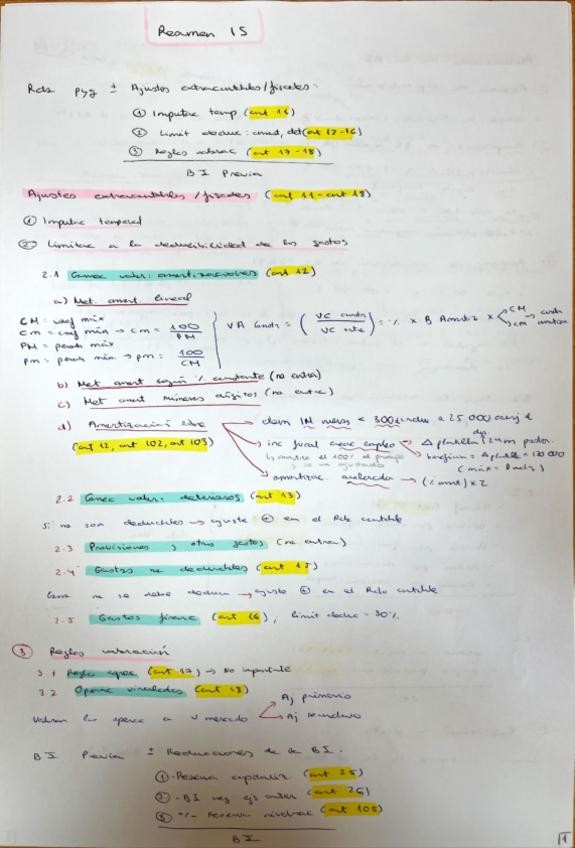 Resumen IS
Rdo pyg ± Ajustes extracontables/fiscales:
① Imputac temp (art 11)
② Limit deduc: amort, det (art 12-16)
③ Reglas valorac (art 17-18)
BI Previa
Ajustes extracontables/fiscales (art 11 - art 18)
① Imputac temporal
② Limitac a la deducibilidad de los gastos
2.1 Correc valor: amortizaciones (art 12)
a) Met. amort. lineal
CM = coef máx
cm = coef mín → cm = 100/PM
PM = periodo máx
pm = periodo mín → pm = 100/CM
VA = (VC / VC) = % x B Amortiz x CM cm
b) Met amort según % constante (no entra)
c) Met amort números dígitos (no entra)
d) Amortización libre
(art 12, art 102, art 103)
→ elem IM nuevos < 300€/indiv a 25.000 conj €
→ inc fiscal crear empleo → Δ plantilla (24m poster.
→ beneficio = Δ plantilla × 120000
→ amortizac. acelerada → (% amort) x 2
2.2 Correc valor: deterioros (art 13)
Si no son deducibles → ajuste ⊕ en el Rdo contable
2.3 Provisiones y otros gastos (no entra)
2.4 Gastos no deducibles (art 15)
Como no se debe deducir → ajuste ⊕ en el Rdo contable
2.5 Gastos financ (art 16), limit deduc = 30%
③ Reglas valoración
3.1 Regla (art 17) → No importante
3.2 Operac vinculadas (art 18)
Valorar las operac a v mercado → Aj primario
→ Aj secundario
BI Previa ± Reducciones de la BI:
① - Reserva capitalizac (art 25)
② - BI neg ejs anter (art 26)
③ +/- Reserva nivelac (art 105)
BI
1